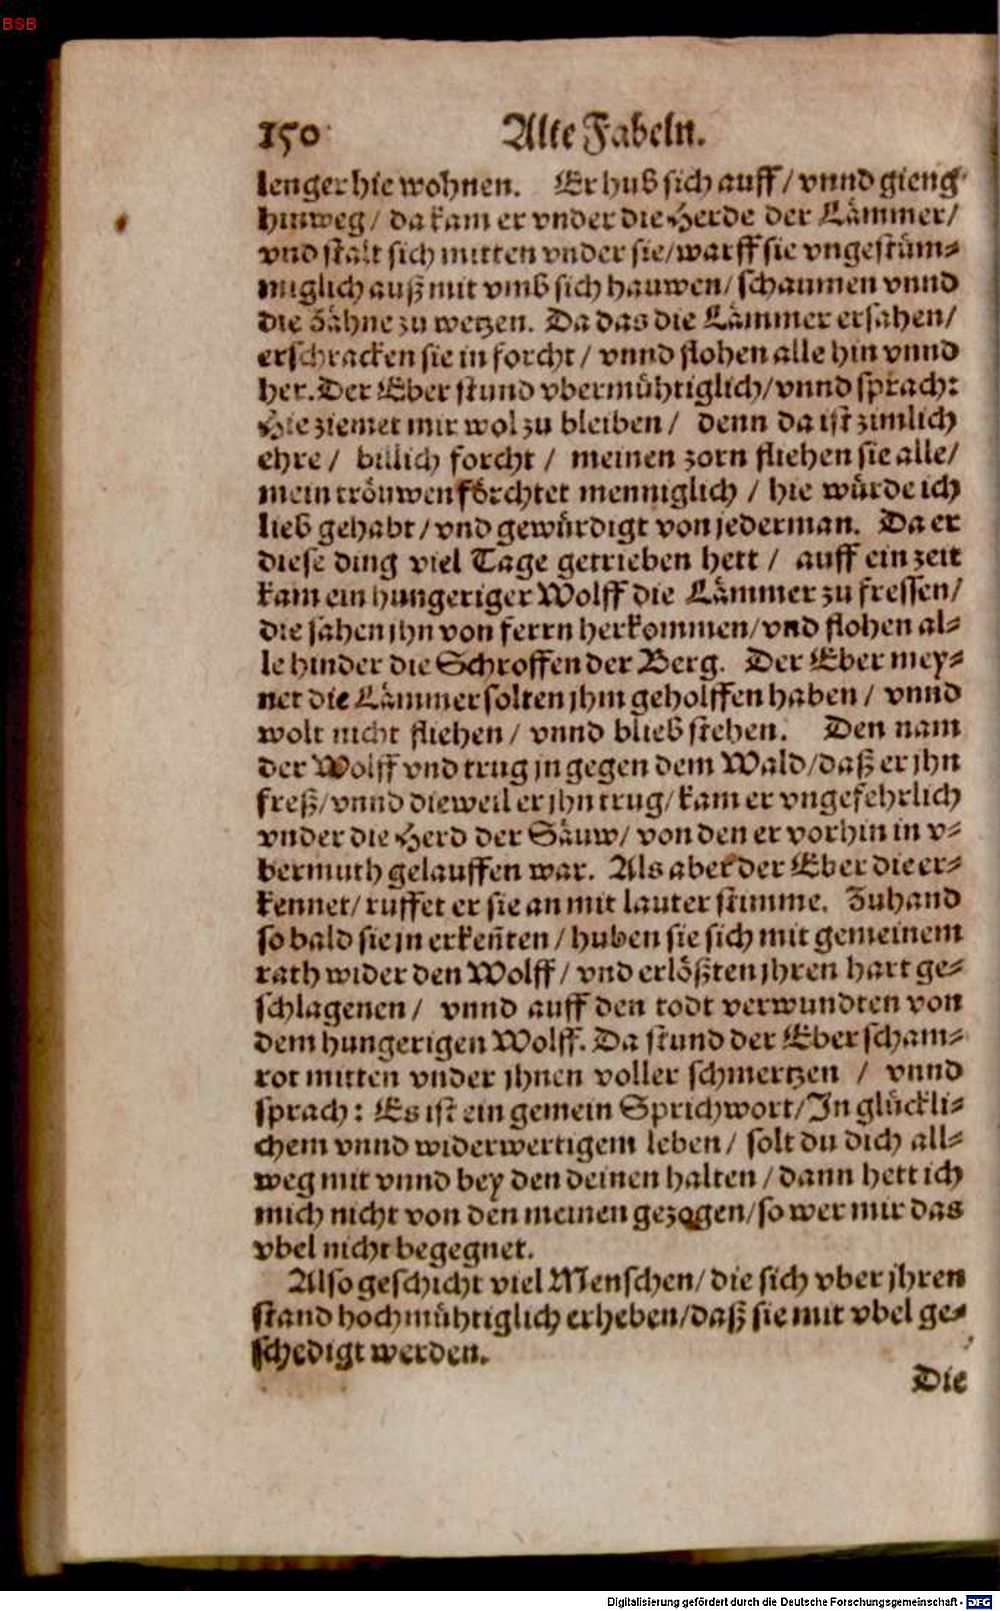 BSB
150 Alte Fabeln.
lenger hie wohnen. Er hub sich auff / vnnd gieng
hinweg / da kam er vnder die Herde der Lämmer /
vnd stalt sich mitten vnder sie / warff sie vngestüm⸗
miglich auß mit vmb sich hauwen / schaumen vnnd
die Zähne zu wetzen. Da das die Lämmer ersahen /
erschracken sie in forcht / vnnd flohen alle hin vnnd
her. Der Eber stund vbermühtiglich / vnnd sprach:
Hie ziemet mir wol zu bleiben / denn da ist zimlich
ehre / billich forcht / meinen zorn fliehen sie alle /
mein tröuwen förchtet menniglich / hie würde ich
lieb gehabt / vnd gewürdigt von jederman. Da er
diese ding viel Tage getrieben hett / auff ein zeit
kam ein hungeriger Wolff die Lämmer zu fressen /
die sahen jhn von ferrn herkommen / vnd flohen al⸗
le hinder die Schroffen der Berg. Der Eber mey⸗
net die Lämmer solten jhm geholffen haben / vnnd
wolt nicht fliehen / vnnd blieb stehen. Den nam
der Wolff vnd trug jn gegen dem Wald / daß er jhn
freß / vnnd dieweil er jhn trug / kam er vngefehrlich
vnder die Herd der Säuw / von den er vorhin in v⸗
bermuth gelauffen war. Als aber der Eber die er⸗
kennet / ruffet er sie an mit lauter stimme. Zuhand
so bald sie jn erkeñten / huben sie sich mit gemeinem
rath wider den Wolff / vnd erlößten jhren hart ge⸗
schlagenen / vnnd auff den todt verwundten von
dem hungerigen Wolff. Da stund der Eber scham⸗
rot mitten vnder jhnen voller schmertzen / vnnd
sprach: Es ist ein gemein Sprichwort / In glückli⸗
chem vnnd widerwertigem leben / solt du dich all⸗
weg mit vnnd bey den deinen halten / dann hett ich
mich nicht von den meinen gezogen / so wer mir das
vbel nicht begegnet.
Also geschicht viel Menschen / die sich vber jhren
stand hochmühtiglich erheben / daß sie mit vbel ge⸗
schedigt werden.
Die
Digitalisierung gefördert durch die Deutsche Forschungsgemeinschaft - DFG